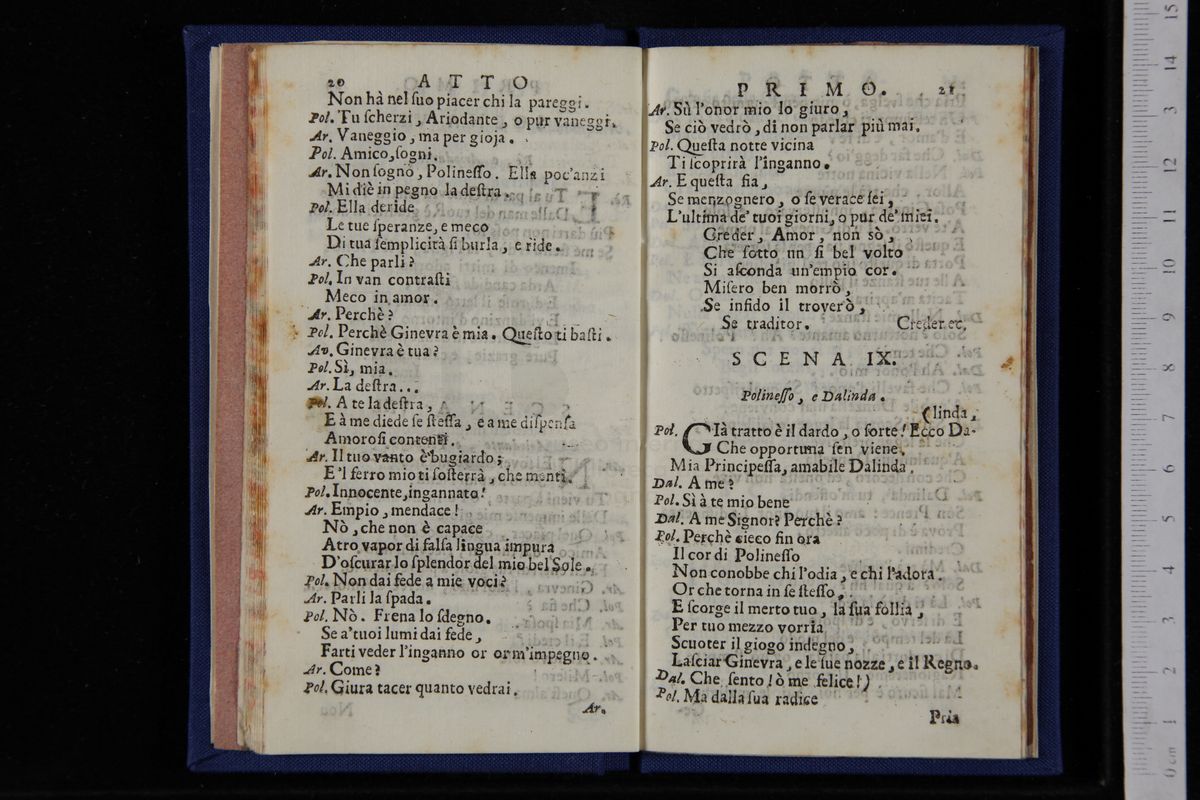 20 ATTO
Non hà nel ſuo piacer chi la pareggi.
Pol. Tu ſcherzi, Ariodante, o pur vaneggi.
Ar. Vaneggio, ma per gioja.
Pol. Amico, ſogni.
Ar. Non ſogno, Polineſſo. Ella poc'anzi
Mi diè in pegno la deſtra.
Pol. Ella deride
Le tue ſperanze, e meco
Di tua ſemplicità ſi burla, e ride.
Ar. Che parli?
Pol. In van contraſti
Meco in amor.
Ar. Perchè?
Pol. Perchè Ginevra è mia. Queſto ti baſti.
Ar. Ginevra è tua?
Pol. Sì, mia.
Ar. La deſtra...
Pol. A te la deſtra,
E à me diede ſe ſteſſa, e a me diſpenſa
Amoroſi contenti.
Ar. Il tuo vanto è bugiardo;
E'l ferro mio ti ſoſterrà, che menti.
Pol. Innocente, ingannato!
Ar. Empio, mendace!
Nò, che non è capace
Atro vapor di falſa lingua impura
D'oſcurar lo ſplendor del mio bel Sole.
Pol. Non dai fede a mie voci?
Ar. Parli la ſpada.
Pol. Nò. Frena lo ſdegno.
Se a'tuoi lumi dai fede,
Farti veder l'inganno or or m'impegno.
Ar. Come?
Pol. Giura tacer quanto vedrai.
Ar.
PRIMO. 21
Ar. Sù l'onor mio lo giuro,
Se ciò vedrò, di non parlar più mai.
Pol. Queſta notte vicina
Ti ſcoprirà l'inganno.
Ar. E queſta fia,
Se menzognero, o ſe verace ſei,
L'ultima de' tuoi giorni, o pur de' miei.
Creder, Amor, non sò,
Che ſotto un ſi bel volto
Si aſconda un'empio cor.
Miſero ben morrò,
Se infido il troverò,
Se traditor. Creder ec.
SCENA IX.
Polineſſo, e Dalinda.
(linda,
Pol. GIà tratto è il dardo, o ſorte! Ecco Da-
Che opportuna ſen viene.
Mia Principeſſa, amabile Dalinda.
Dal. A me?
Pol. Sì à te mio bene
Dal. A me Signor? Perchè?
Pol. Perchè cieco fin ora
Il cor di Polineſſo
Non conobbe chi l'odia, e chi l'adora.
Or che torna in ſe ſteſſo,
E ſcorge il merto tuo, la ſua follia,
Per tuo mezzo vorria
Scuoter il giogo indegno,
Laſciar Ginevra, e le ſue nozze, e il Regno.
Dal. Che ſento! ò me felice!)
Pol. Ma dalla ſua radice
Pria